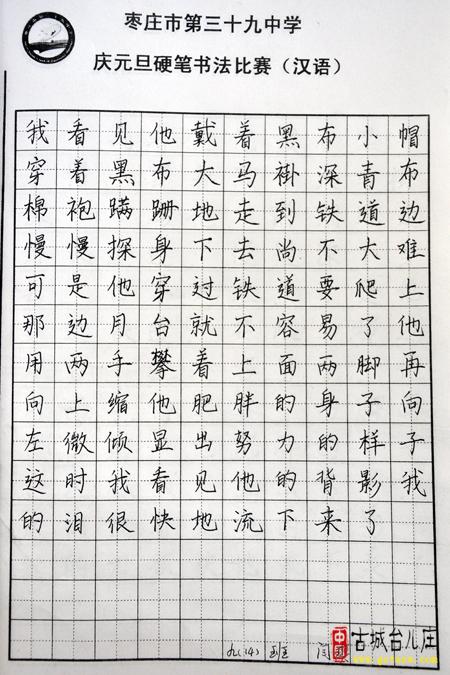 枣庄市第三十九中学
庆元旦硬笔书法比赛（汉语）
我看见他戴着黑布小帽
穿着黑布大马褂深青布
棉袍蹒跚地走到铁道边
慢慢探身下去尚不大难
可是他穿过铁道要爬上
那边月台就不容易了他
用两手攀着上面两脚再
向上缩他肥胖的身子向
左微倾显出努力的样子
这时我看见他的背影我
的泪很快地流下来了
九(14) 班 闫
古城台儿庄